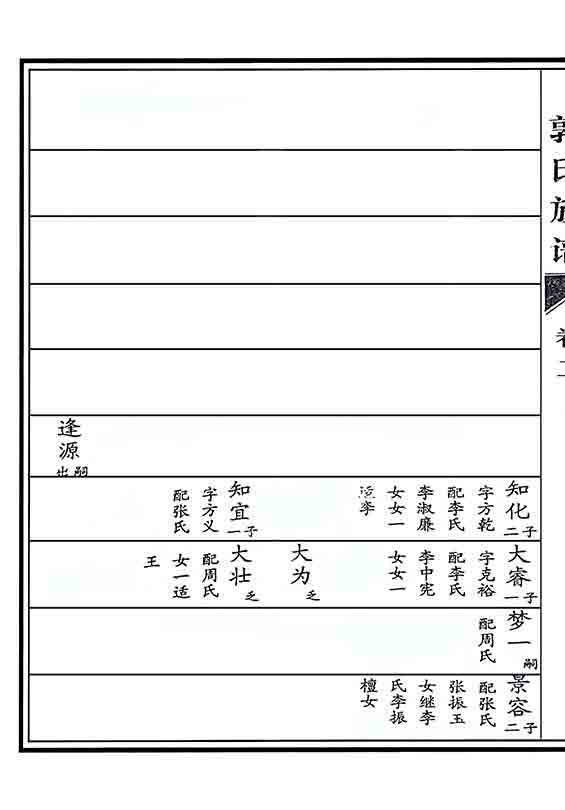 郭氏族谱
卷二
逢源
出嗣
知化
二子
字方乾
配李氏
李淑廉
女女一
适李
知宜
一子
字方义
配张氏
大睿
一子
字克裕
配李氏
李中宪
女女一
大为
乏
大壮
乏
配周氏
女一适
王
梦一
嗣
配周氏
景容
二子
配张氏
张振玉
女继李
氏李振
檀女